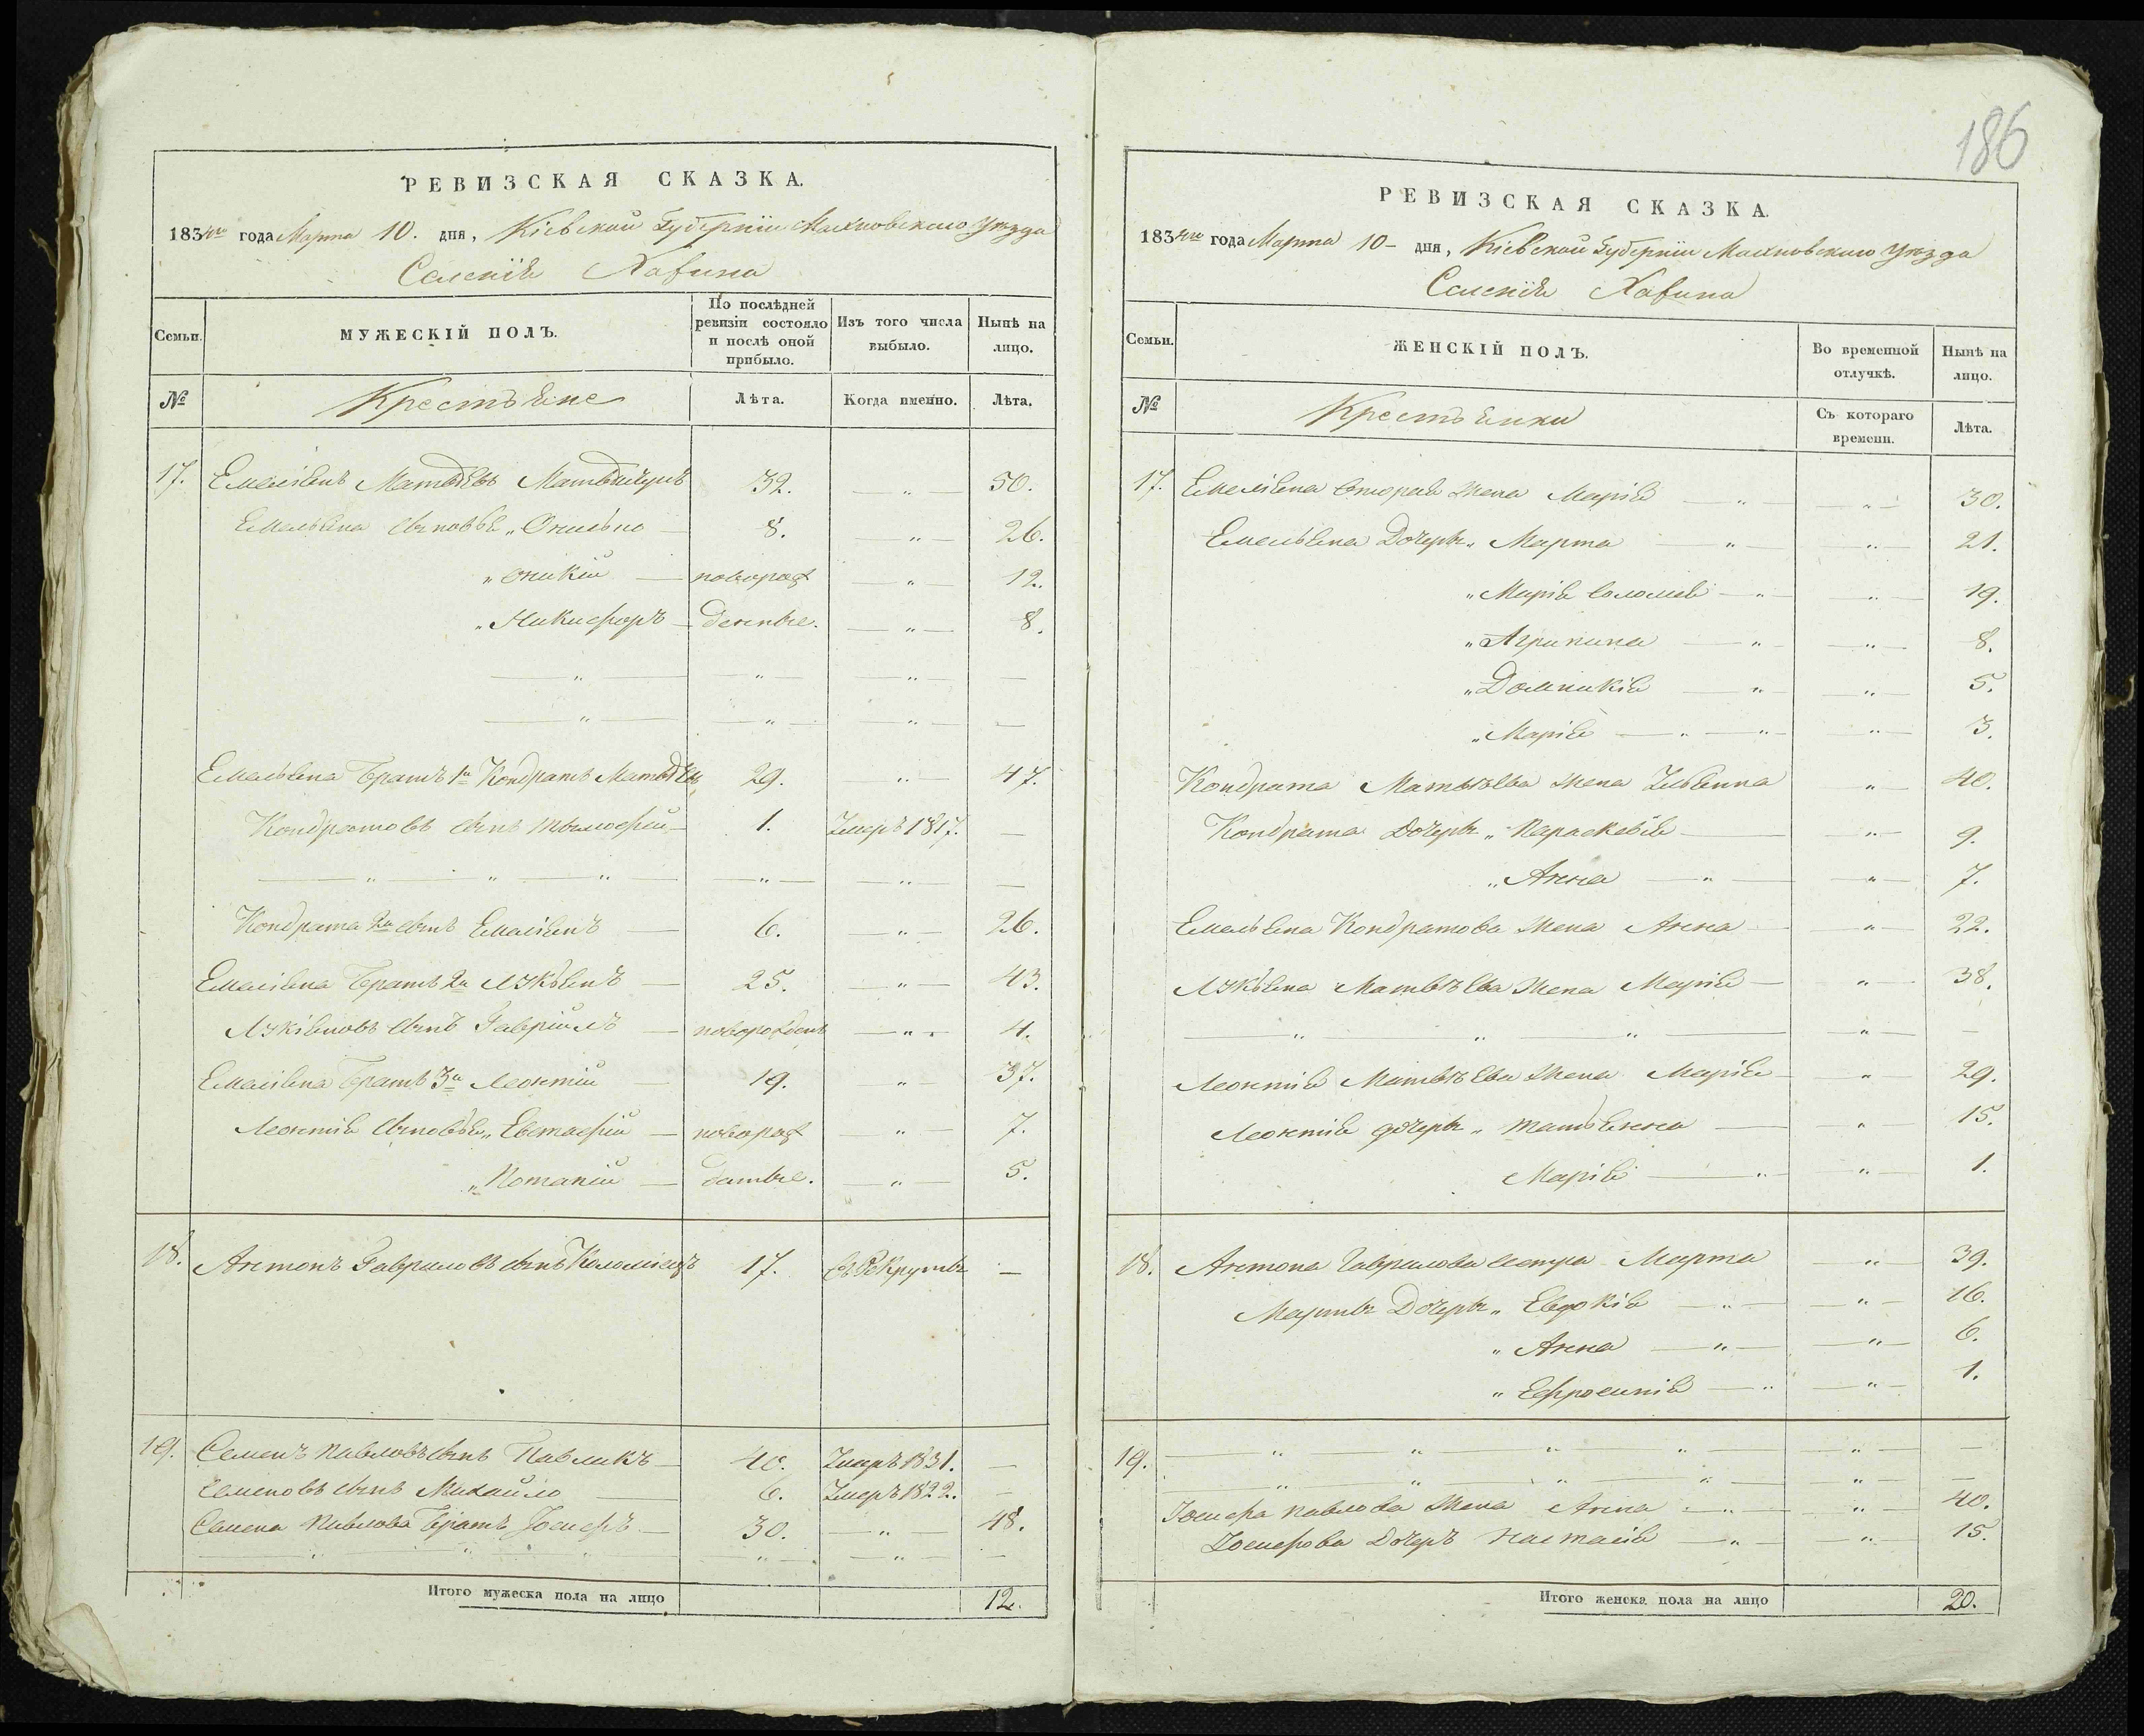 186
РЕВИЗСКАЯ СКАЗКА.
1834го года Марта 10. дня, Кіевской Губерніи Махновскаго Уѣзда
Селенія Хавина
Семьи.
МУЖЕСКІЙ ПОЛЪ.
По послѣдней ревизіи состояло и послѣ оной прибыло.
Изъ того числа выбыло.
Нынѣ на лицо.
№
Крестьяне
Лѣта.
Когда именно.
Лѣта.
17. Емеліянъ Матвѣевъ 32. — „ — 50.
Емельяна сыновья „ 8. — „ — 26.
„ новорож — „ — 12.
„ Никифоръ — 8.
— „ — — „ — — „ — —
— „ — — „ — — „ — —
Емельяна братъ 1й Кондратъ Матвѣевъ 29. „ — 47.
Кондратовъ сынъ — 1. Умеръ 1817. —
— „ — „ — „ — — „ — — „ — —
Кондрата 2й сынъ Емеліянъ — 6. — „ — 26.
Емеліяна братъ 2й Лукьянъ — 25. — „ — 43.
Лукіяновъ сынъ Гавріилъ — новорожденъ — „ — 4.
Емеліяна братъ 3й Леонтій — 19. „ — 37.
Леонтія сыновья „ Евстафій — новорож — „ — 7.
„ Потапій — — „ — 5.
18. Антонъ Гавриловъ сынъ Коломіецъ 17. —
19. Семенъ Павловъ сынъ Павликъ — 40. Умеръ 1831. —
Семеновъ сынъ Михайло — 6. Умеръ 1822. —
Семена Павлова братъ Іосифъ — 30. — „ — 48.
— „ — „ — „ — „ — — „ — —
Итого мужеска пола на лицо 12.
РЕВИЗСКАЯ СКАЗКА.
1834го года Марта 10 – дня, Кіевской Губерніи Махновскаго Уѣзда
Селенія Хавина
Семьи.
ЖЕНСКІЙ ПОЛЪ.
Во временной отлучкѣ.
Нынѣ на лицо.
№
Крестьянки
Съ котораго времени.
Лѣта.
17. Емеліяна вторая жена Марія — „ — — „ — 30.
Емельяна дочери „ Марта — „ — — „ — 21.
„ Марія — „ — — „ — 19.
„ Агрипина — „ — — „ — 8.
„ Домникія — „ — „ — 5.
„ Марія — „ — „ — — „ — 3.
Кондрата Матвѣева жена Ульянна „ — 40.
Кондрата дочери „ Параскевія — — „ — 9.
„ Анна — „ — — „ — 7.
Емельяна Кондратова жена Анна — „ — 22.
Лукьяна Матвѣева жена Марія — „ — 38.
— „ — „ — „ — — „ — —
Леонтія Матвѣева жена Марія — „ — 29.
Леонтія дочери „ Татьянна — „ — 15.
Марія — „ — — „ — 1.
18. Антона Гаврилова сестра Марта — „ — 39.
Марты дочери „ Евдокія — „ — — „ — 16.
„ Анна — „ — — „ — 6.
„ Ефросинія — „ — „ — 1.
19. — „ — „ — „ — „ — — „ — —
— „ — „ — „ — „ — „ — —
Іосифа Павлова жена Анна — „ — „ — 40.
Іосифова дочерь Настасія — „ — — „ — 15.
Итого женска пола на лицо 20.